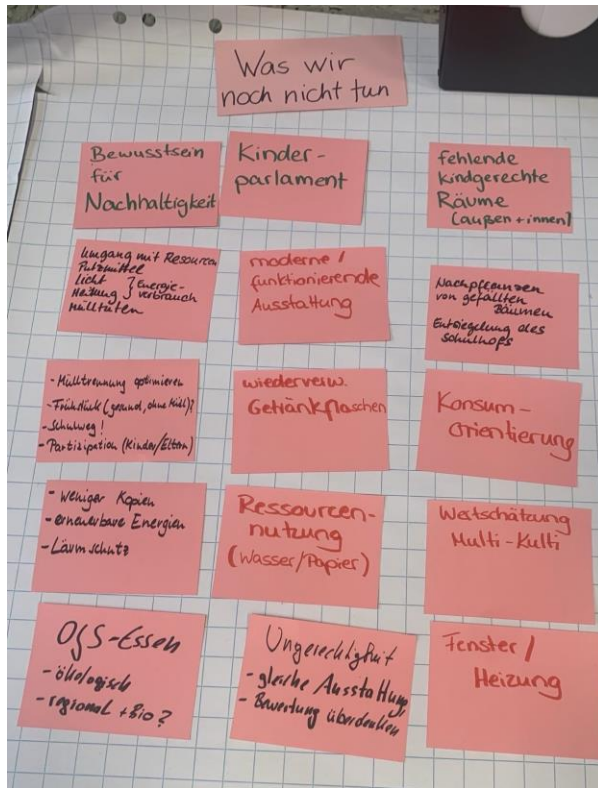 Was wir
noch nicht tun
Bewusstsein
für
Nachhaltigkeit
Kinder-
parlament
fehlende
kindgerechte
Räume
(außen + innen)
Umgang mit Resourcen
Putzmittel
Licht
Heizung } Energie-
verbrauch
Mülltüten
moderne /
funktionierende
Ausstattung
Nachpflanzen
von gefällten
Bäumen
Entsiegelung des
Schulhofs
- Mülltrennung optimieren
- Frühstück (gesund, ohne Müll)?
- Schulweg!
- Partizipation (Kinder/Eltern)
wiederverw.
Getränkflaschen
Konsum-
orientierung
- weniger Kopien
- erneuerbare Energien
- Lärmschutz
Ressourcen-
nutzung
(Wasser/Papier)
Wertschätzung
Multi-Kulti
OGS-Essen
- ökologisch
- regional + Bio?
Ungerechtigkeit
- gleiche Ausstattung
- Bewertung überdenken
Fenster /
Heizung